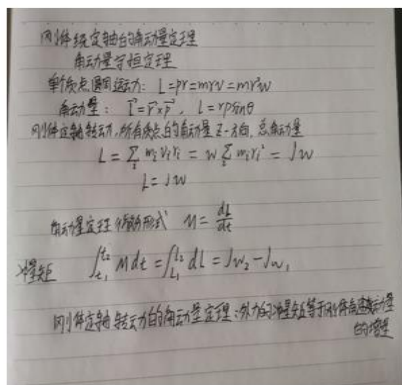 刚体绕定轴的角动量定理
角动量守恒定理
单个质点圆周运动: L=pr=mrv=mr²w
角动量: L⃗=r⃗×p⃗, L=rpsinθ
刚体定轴转动,所有质点的角动量Z-方向,总角动量
L=∑mᵢvᵢrᵢ=w∑mᵢrᵢ²=Jw
L=Jw
角动量定理(微分形式) M=dL/dt
冲量矩 ∫_{t₁}^{t₂}Mdt=∫_{L₁}^{L₂}dL=Jw₂-Jw₁
刚体定轴转动的角动量定理:外力的冲量矩等于刚体角动量
的增量